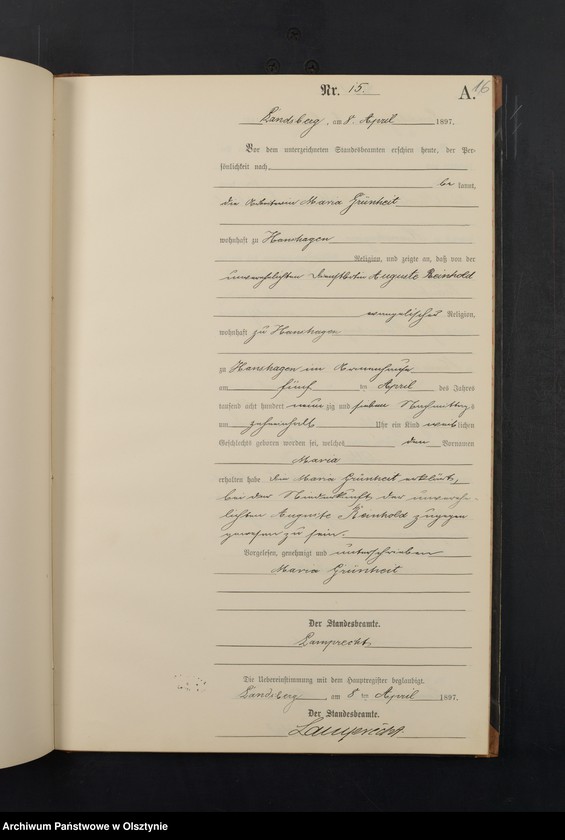 Nr. 15.
A. 16
Landsberg, am 8. April 1897.
Vor dem unterzeichneten Standesbeamten erschien heute, der Per-
sönlichkeit nach
be kannt,
die Arbeiterin Maria Grünheit
wohnhaft zu Hanshagen
Religion, und zeigte an, daß von der
unverehelichten Dienstbotin Auguste Reinhold
evangelischer Religion,
wohnhaft zu Hanshagen
zu Hanshagen im Armenhause
am fünf ten April des Jahres
tausend acht hundert neunzig und sieben Nachmittags
um zehneinhalb Uhr ein Kind weiblichen
Geschlechts geboren worden sei, welches den Vornamen
Maria
erhalten habe. Die Maria Grünheit erklärt,
bei der Niederkunft der unvere-
lichten Auguste Reinhold zugegen
gewesen zu sein.
Vorgelesen, genehmigt und unterschrieben
Maria Grünheit
Der Standesbeamte.
Lamprecht
Die Uebereinstimmung mit dem Hauptregister beglaubigt.
Landsberg, am 8 ten April 1897.
Der Standesbeamte.
Lamprecht
Archiwum Państwowe w Olsztynie